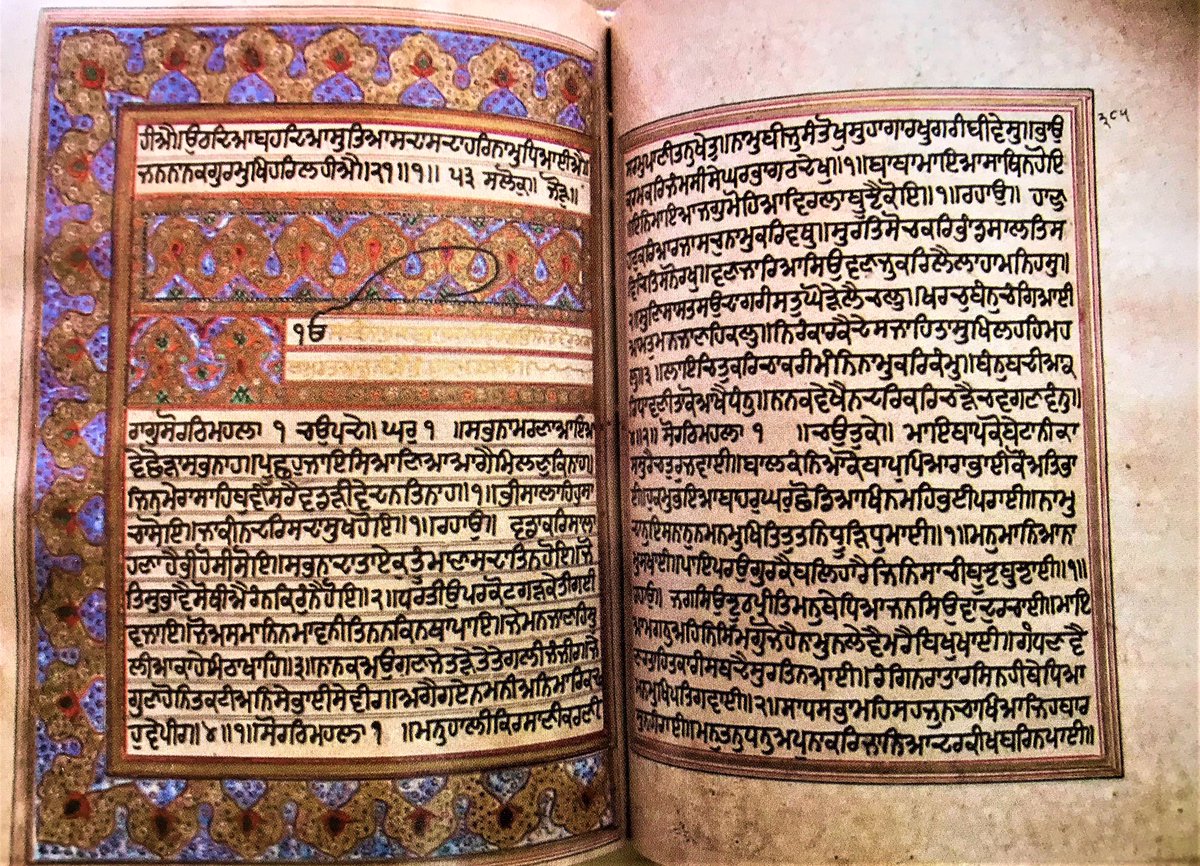 ਹੀਐ॥ਊਠਦਿਆਬਹਦਿਆਸੁਤਿਆਸਦਾਸਦਾਹਰਿਨਾਮੁਧਿਆਈਐ॥
ਜਨਨਾਨਕਗੁਰਮੁਖਿਹਰਿਲਹੀਐ॥੨੧॥੧॥
੧ੳ
ਰਾਗੁਸੋਰਠਿਮਹਲਾ ੧ ਚਉਪਦੇ॥ ਘਰੁ ੧ ॥ਸਭਨਾਮਰਣਾਆਇਆ
ਵੇਛੋੜਾਸਭਨਾਹ॥ਪੁਛਹੁਜਾਇਸਿਆਣਿਆਆਗੈਮਿਲਣੁਕਿਨਾਹ॥
ਜਿਨਮੇਰਾਸਾਹਿਬੁਵੀਸਰੈਵਡੜੀਵੇਦਨਤਿਨਾਹ॥੧॥ਭੀਸਾਲਾਹਿਹੁਸਾ
ਚਾਸੋਇ॥ਜਾਕੀਨਦਰਿਸਦਾਸੁਖੁਹੋਇ॥੧॥ਰਹਾਉ॥ ਵਡਾਕਰਿਸਾਲਾ
ਹਣਾਹੈਭੀਹੋਸੀਸੋਇ॥ਸਭਨਾਦਾਤਾਏਕੁਤੂੰਮਾਣਸਦਾਤਿਨਹੋਇ॥ਜੋ
ਤਿਸੁਭਾਵੈਸੋਥੀਐਰੰਨਕਿਰੁੰਨੈਹੋਇ॥੨॥ਧਰਤੀਉਪਰਿਕੋਟਗੜਕੇਤੀਗਈ
ਵਜਾਇ॥ਜੋਅਸਮਾਨਿਨਮਾਵਨੀਤਿਨਨਕਿਨਥਾਪਾਇ॥ਜੇਮਨਜਾਣਹਿਸੂ
ਲੀਆਕਾਹੇਮਿਠਾਖਾਹਿ॥੩॥ਨਾਨਕਅਉਗੁਣਜੇਤੜੇਤੇਤੇਗਲੀਜੰਜੀਰ॥ਜੇ
ਗੁਣਹੋਨਿਤਕਟੀਅਨਿਸੇਭਾਈਸੇਵੀਰ॥ਅਗੈਗਏਨਮੰਨੀਅਨਿਮਾਰਿਕਢ
ਹੁਵੇਪੀਰ॥੪॥੧॥ਸੋਰਠਿਮਹਲਾ ੧ ॥ਮਨੁਹਾਲੀਕਿਰਸਾਣੀਕਰਣੀ
੩੮੫
ਸਰਮੁਪਾਣੀਤਨੁਖੇਤੁ॥ਨਾਮੁਬੀਜੁਸੰਤੋਖੁਸੁਹਾਗਾਰਖੁਗਰੀਬੀਵੇਸੁ॥ਭਾਉ
ਕਰਮਕਰਿਜੰਮਸੀਸੇਘਰਭਾਗਠਦੇਖੁ॥੧॥ਬਾਬਾਮਾਇਆਸਾਥਿਨਹੋਇ
ਇਨਿਮਾਇਆਜਗੁਮੋਹਿਆਵਿਰਲਾਬੂਝੈਕੋਇ॥੧॥ਰਹਾਉ॥ ਹਾਣੁ
ਕਰਿਆਰਜਾਸਚੁਨਾਮੁਕਰਿਵਥੁ॥ਸੁਰਤਿਸੋਚਕਰਿਭਾਂਡਸਾਲਤਿਸ
ਵਿਚਿਤਿਸਨੋਰਖੁ॥ਵਣਜਾਰਿਆਸਿਉਵਣਜੁਕਰਿਲੈਲਾਹਾਮਨਿਹਸੁ॥
੨॥ਸੁਣਿਸਾਸਤਸਉਦਾਗਰੀਸਤੁਘੋੜੇਲੈਚਲੁ॥ਖਰਚੁਬੰਨੁਚੰਗਿਆਈ
ਆਮਤੁਮਨਜਾਣਹਿਕਲੁ॥ਨਿਰੰਕਾਰਕੈਦੇਸਜਾਹਿਤਾਸੁਖਿਲਹਹਿਮਹ
ਲੁ॥੩॥ਲਾਇਚਿਤੁਕਰਿਚਾਕਰੀਮੰਨਿਨਾਮੁਕਰਿਕੰਮੁ॥ਬੰਨੁਬਦੀਆਕ
ਰਿਧਾਵਣੀਤਾਕੋਆਖੈਧੰਨੁ॥ਨਾਨਕਵੇਖੈਨਦਰਿਕਰਿਚੜੈਚਵਗਣਵੰਨੁ॥
੪॥੨॥ਸੋਰਠਿਮਹਲਾ ੧ ॥ਚਉਤੁਕੇ॥ ਮਾਇਬਾਪਕੋਬੇਟਾਨੀਕਾ
ਸਸੁਰੈਚਤੁਰੁਜਵਾਈ॥ਬਾਲਕੰਨਿਆਕੌਬਾਪੁਪਿਆਰਾਭਾਈਕੌਅਤਿਭਾ
ਈ॥ਹੁਕਮੁਭਇਆਬਾਹਰੁਘਰੁਛੋਡਿਆਖਿਨਮਹਿਭਈਪਰਾਈ॥ਨਾਮੁ
ਦਾਨੁਇਸਨਾਨੁਨਮਨਮੁਖਿਤਿਤੁਤਨਿਧੂੜਿਧੁਮਾਈ॥੧॥ਮਨੁਮਾਨਿਆਨਾ
ਮੁਸਖਾਈ॥ਪਾਇਪਰਉਗੁਰਕੈਬਲਿਹਾਰੈਜਿਨਿਸਾਚੀਬੂਝਬੁਝਾਈ॥੧॥
ਰਹਾਉ॥ ਜਗਸਿਉਝੂਠਪ੍ਰੀਤਿਮਨੁਬੇਧਿਆਜਨਸਿਉਵਾਦੁਰਚਾਈ॥ਮਾਇ
ਆਮਗਨੁਅਹਿਨਿਸਿਮਗੁਜੋਹੈਨਾਮੁਨਲੇਵੈਮਰੈਬਿਖੁਖਾਈ॥ਗੰਧਣਵੈ
ਣਿਰਤਾਹਿਤਕਾਰੀਸਬਦੈਸੁਰਤਿਨਆਈ॥ਰੰਗਿਨਰਾਤਾਰਸਿਨਹੀਬੇਧਿਆ
ਮਨਮੁਖਿਪਤਿਗਵਾਈ॥੨॥ਸਾਧਸਭਾਮਹਿਸਹਜੁਨਚਾਖਿਆਜਿਹਬਾਰ
ਸੁਨਹੀਰਾਈ॥ਮਨੁਤਨੁਧਨੁਅਪੁਨਾਕਰਿਜਾਨਿਆਦਰਕੀਖਬਰਿਨਪਾਈ॥